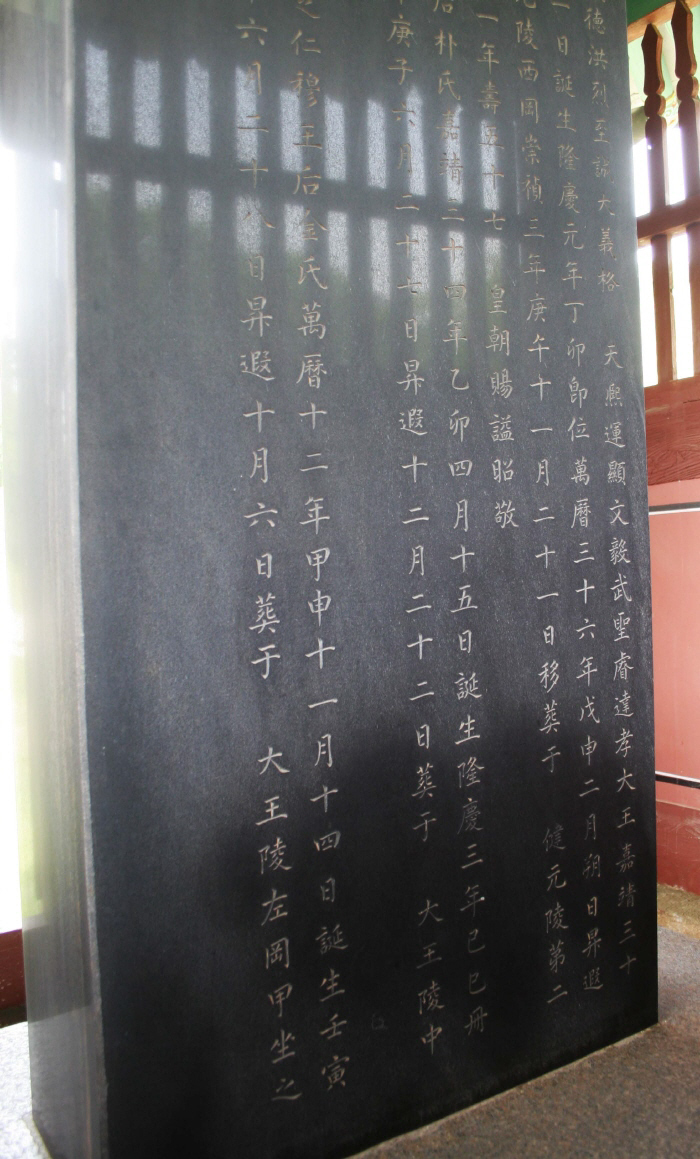 德洪烈至誠大義格 天熙運顯文毅武聖睿達孝大王嘉靖三十
一日誕生隆慶元年丁卯卽位萬曆三十六年戊申二月朔日昇遐
元陵西岡崇禎三年庚午十一月二十一日移葬于 健元陵第二
一年壽五十七 皇朝賜諡昭敬
后朴氏嘉靖三十四年乙卯四月十五日誕生隆慶三年己巳冊
庚子六月二十七日昇遐十二月二十二日葬于 大王陵中
仁穆王后金氏萬曆十二年甲申十一月十四日誕生壬寅
六月二十八日昇遐十月六日葬于 大王陵左岡甲坐之